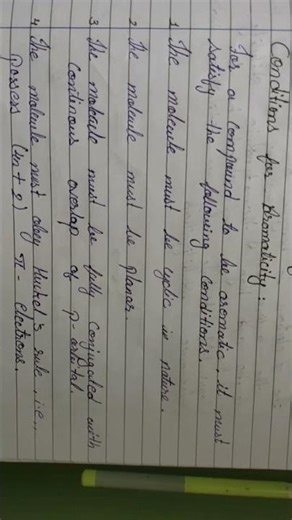 Conditions for Aromaticity :
For a compound to be aromatic, it must
satisfy the following conditions.
1. The molecule must be cyclic in nature.
2. The molecule must be planar.
3. The molecule must be fully conjugated with
continous overlap of p-orbital.
4. The molecule must obey Huckel's rule i.e.,
possess (4n + 2) π - electrons.